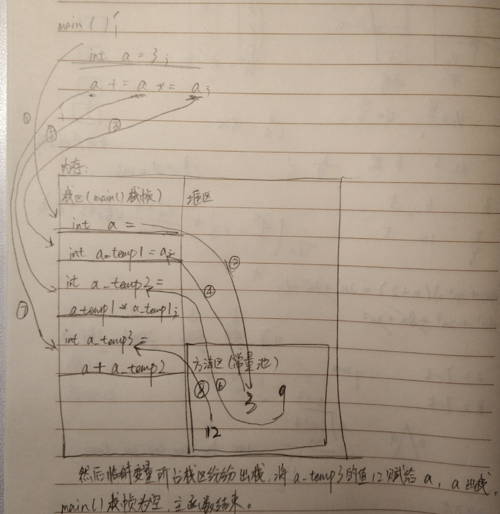 main(){
int a = 3;
a += a *= a;
① ③ ⑤
内存:
栈区(main()栈帧) 堆区
int a =
int a_temp1 = a;
int a_temp2 =
a_temp1 * a_temp1;
int a_temp3 =
a + a_temp2
② ④ ⑦ ⑧ ⑥
方法区(常量池)
3 9
12
然后临时变量所占栈区纷纷出栈,将a_temp3的值12赋给a,a出栈,
main()栈帧为空,主函数结束。